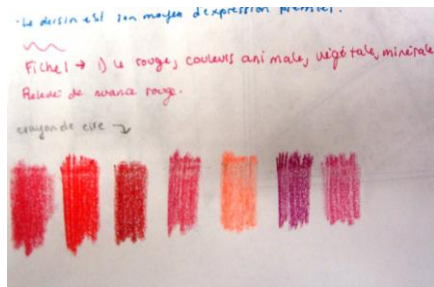 - Le dessin est son moyen d'expression premier.
Fiche 1 → 1) Le rouge, couleurs animale, végétale, minérale
Relevé de nuance rouge.
crayon de cire →